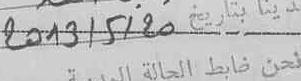 لدينا بتاريخ 2013/5/20
نحن ضابط الحالة المدنية